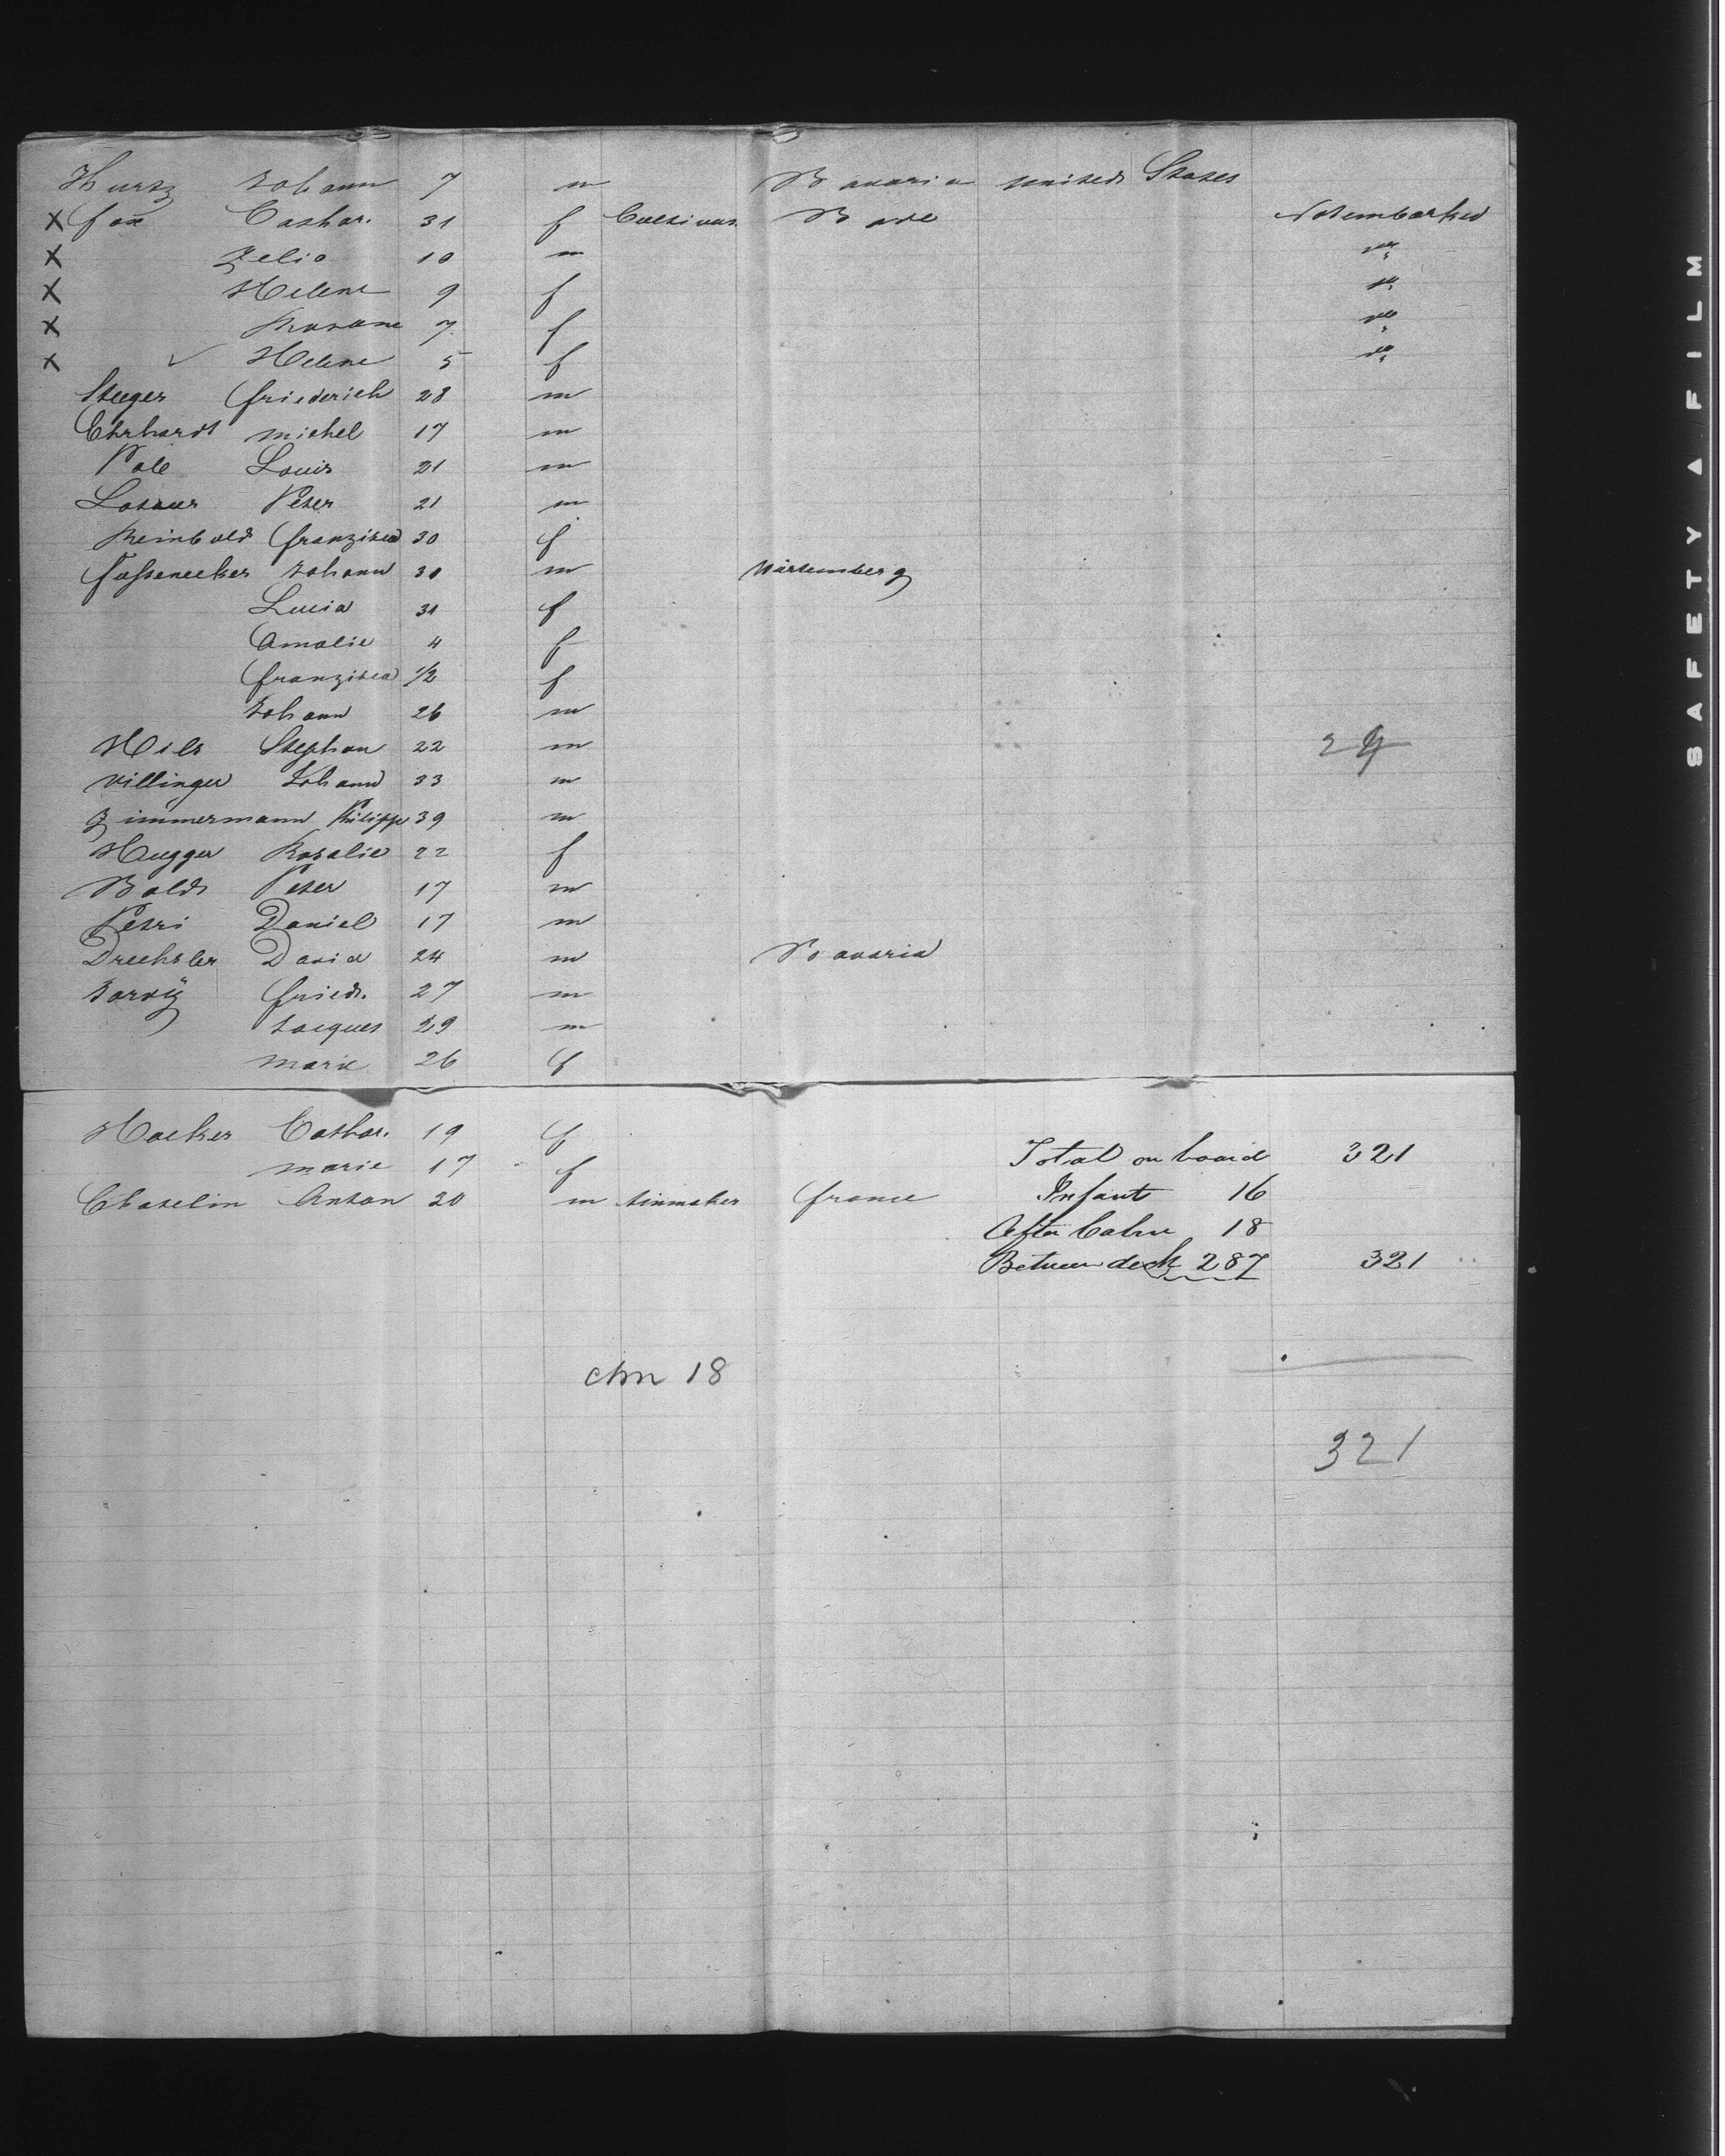 Kurtz Johann 7 m Bavaria united States
X fox Cathar. 31 f Cultivat. Bade Not embarked
X Felia 10 m do
X Helene 9 f do
X Rosane 7 f do
X ✓ Helene 5 f do
Steger friederich 28 m
Ehrhardt michel 17 m
Pole Louis 21 m
Peter 21 m
Reinbold franzisca 30 f
Johann 30 m Würtemberg
Lucia 31 f
Amalie 4 f
franzisca 1/2 f
Johann 26 m
Hils Stephan 22 m 24
Villinger Johann 33 m
Zimmermann Philipp 39 m
Hugger Rosalie 22 f
Boldt Peter 17 m
Petri Daniel 17 m
Drechsler David 24 m Bavaria
friedr. 27 m
Jacques 29 m
marie 26 f
Hacker Cathar. 19 f
marie 17 f Total on board 321
Chatelin Anton 30 m tinmaker france Infants 16
After Cabin 18
Between deck 287 321
chn 18
321
SAFETY A FILM